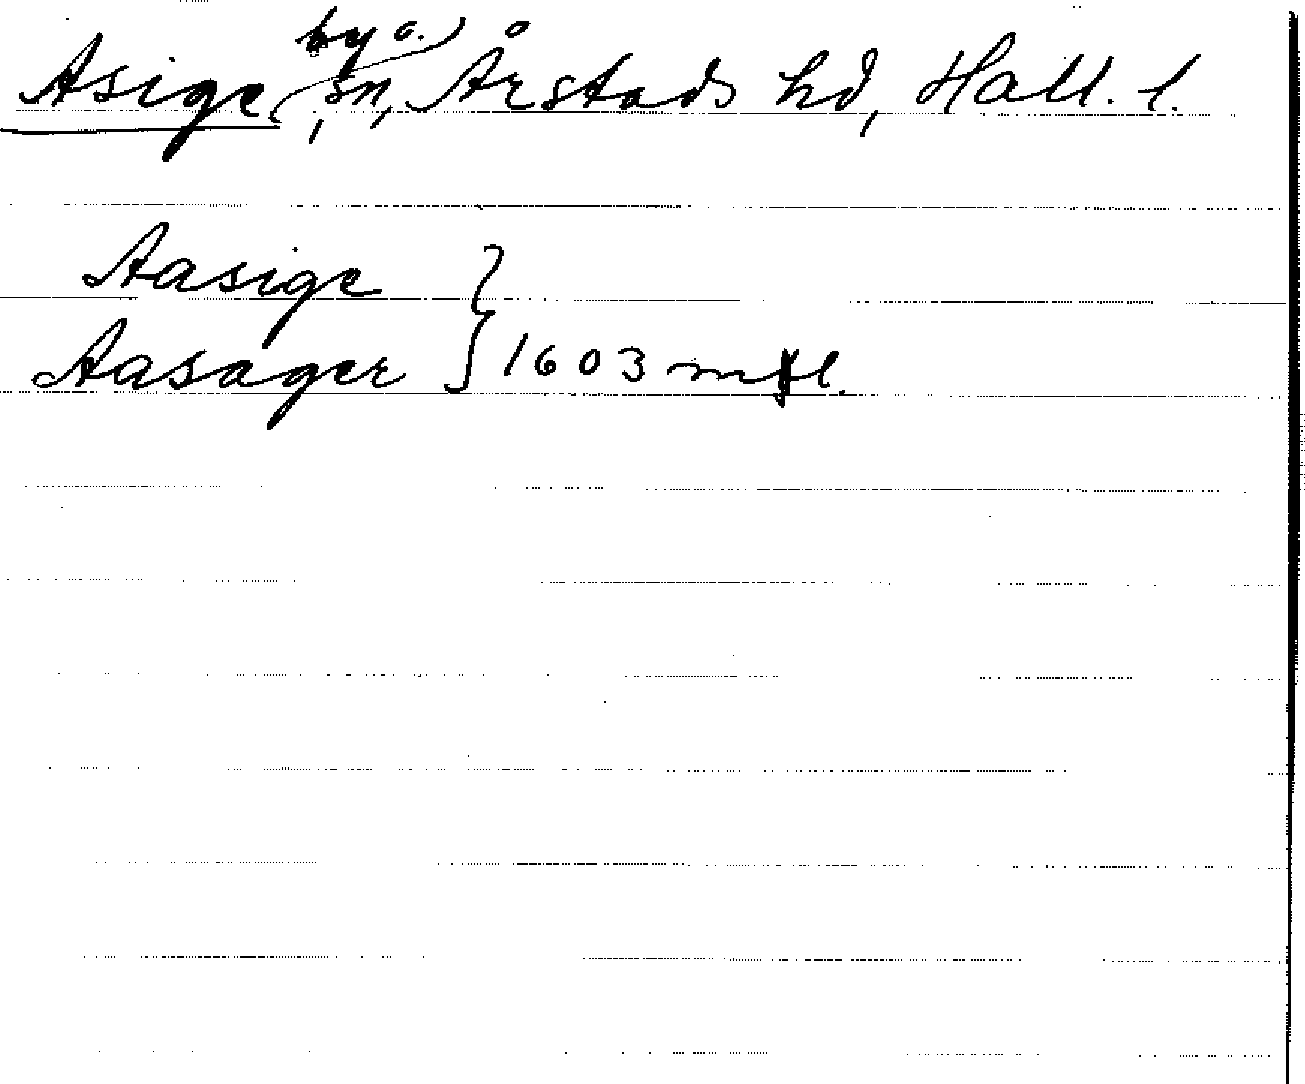 Asige, by o. sn, Årstads hd, Hall. l.
Aasige
Aasager } 1603 mtl.